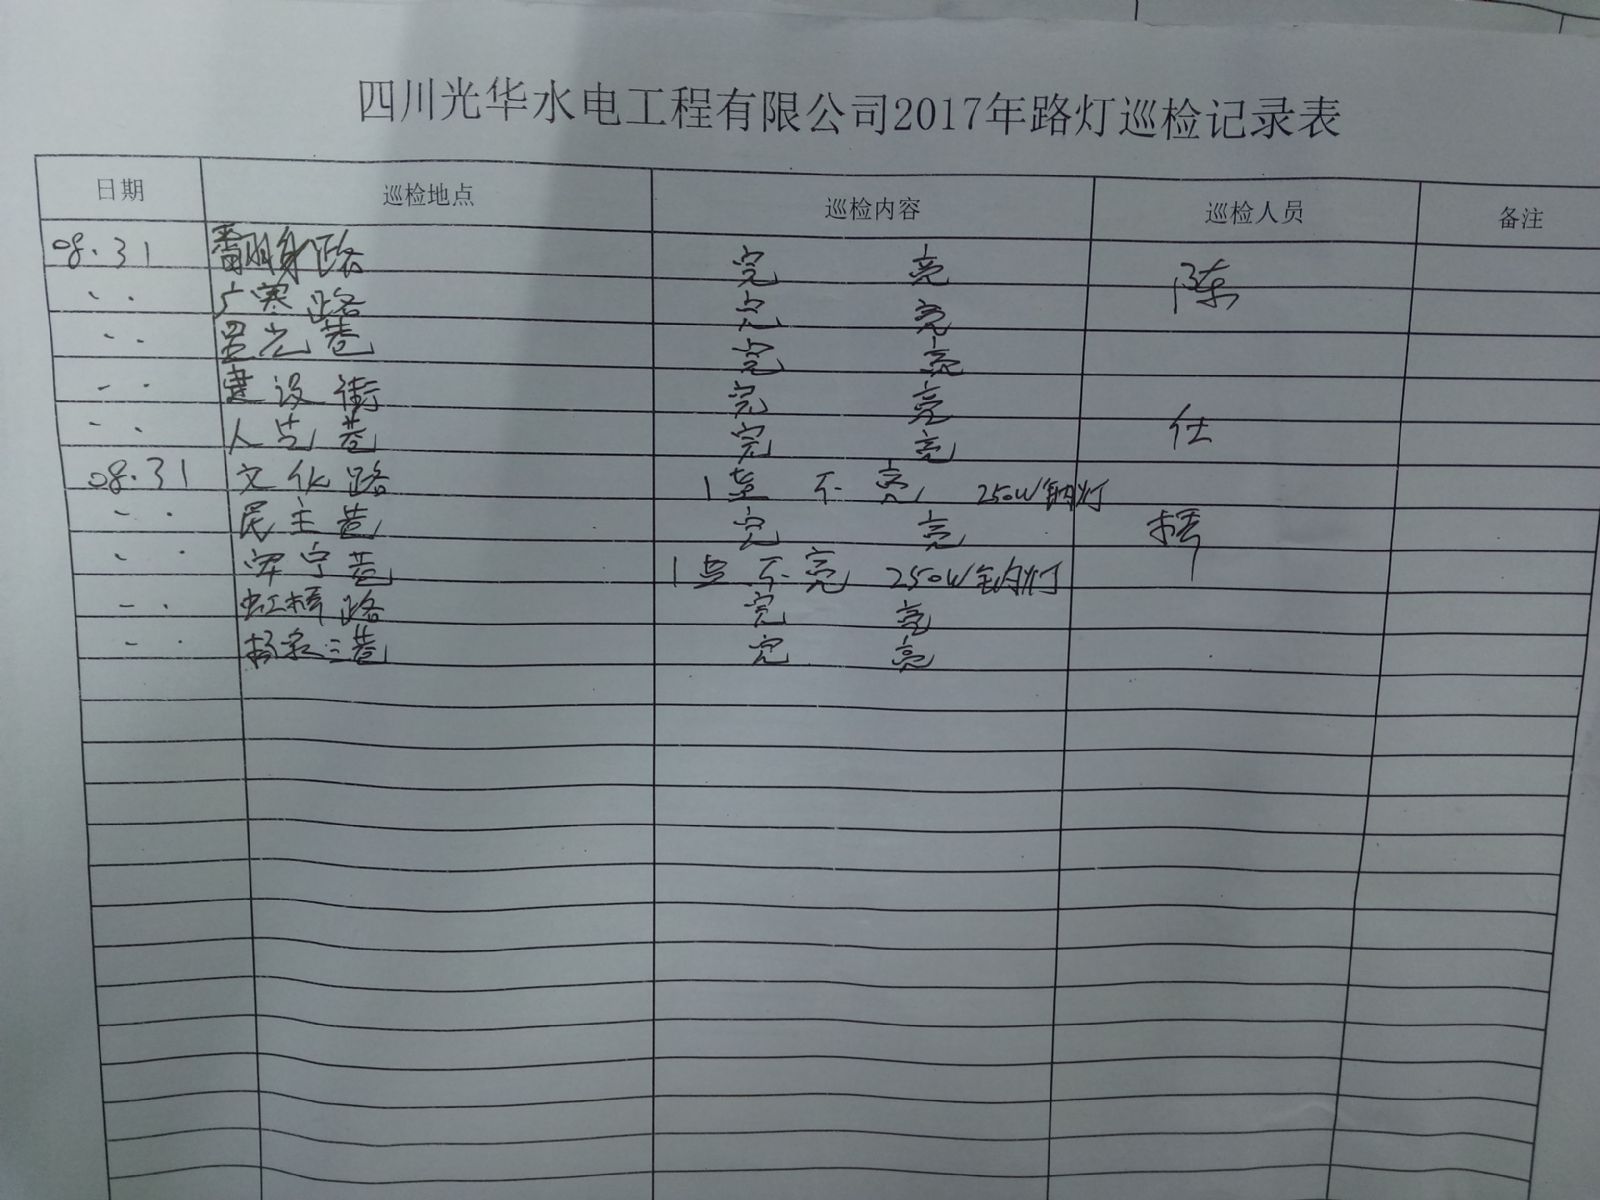 四川光华水电工程有限公司2017年路灯巡检记录表
日期 巡检地点 巡检内容 巡检人员 备注
08.31 路 完 亮 陈
〃 广寒路 完 亮
〃 星光巷 完 亮
〃 建设街 完 亮
〃 人民巷 完 亮 仕
08.31 文化路 1盏 不 亮 250W钠灯
〃 民主巷 完 亮
〃 安宁巷 1盏不亮 250W钠灯
〃 虹桥路 完 亮
〃 杨家三巷 完 亮